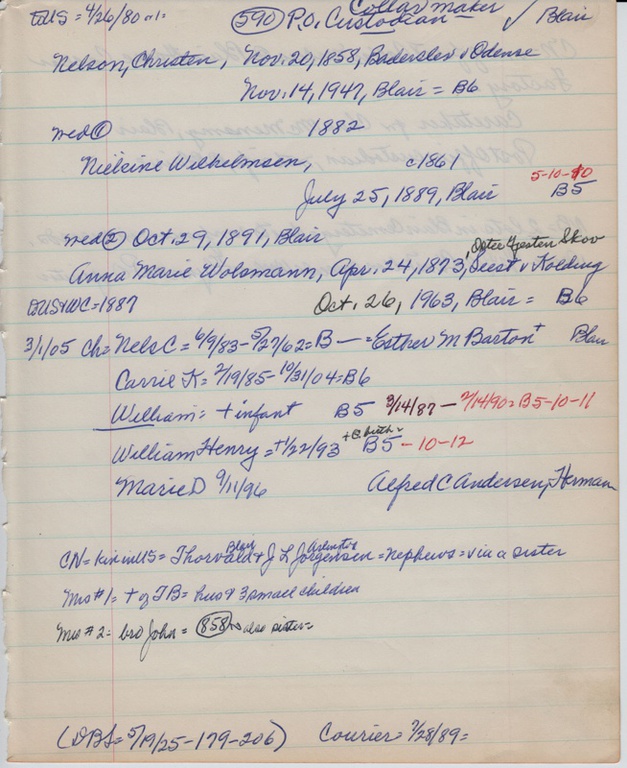 EUS = 4/26/80 al= (590) P.O. Custodian Collar maker ✓ Blair
Nelson, Christen, Nov. 20, 1858, Baderslev v Odense
Nov. 14, 1947, Blair = B6
wed ① 1882
Nielsine Wilhelmsen, c1861
5-10-10
July 25, 1889, Blair B5
wed ② Oct. 29, 1891, Blair
Oster Gjesten Skov
Anna Marie Wolsmann, Apr. 24, 1873, Seest v Kolding
EUS+WC=1887 Oct. 26, 1963, Blair = B6
3/1/05 Ch= Nels C = 6/9/83 - 5/27/62 = B — = Esther M Barton + Blair
Carrie K = 2/19/85 - 10/31/04 = B6
William = + infant B5 3/14/87 - 2/14/90 = B5-10-11
William Henry = +1/22/93 + @ birth B5 - 10-12
Marie D 9/11/96 Alfred C Andersen, Herman
CN = kin in US = Thorvald Blair + J L Jorgensen Arlington = nephews = via a sister
Mrs #1 = + of TB = hus & 3 small children
Mrs #2 = bro John = (858) also sister =
(DBL = 5/19/25 - 179 - 206) Courier = 7/28/89 =